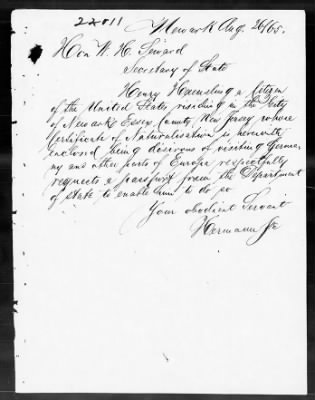 22011
Newark Aug. 26/65.
Hon W. H. Seward
Secretary of State
Henry a Citizen
of the United States, residing in the City
of Newark Essex County, New Jersey whose
Certificate of Naturalisation is herewith
enclosed being desirous of visiting Germa-
ny and other parts of Europe respectfully
requests a passport from the Department
of State to enable him to do so
Your obedient Servant
Hermann